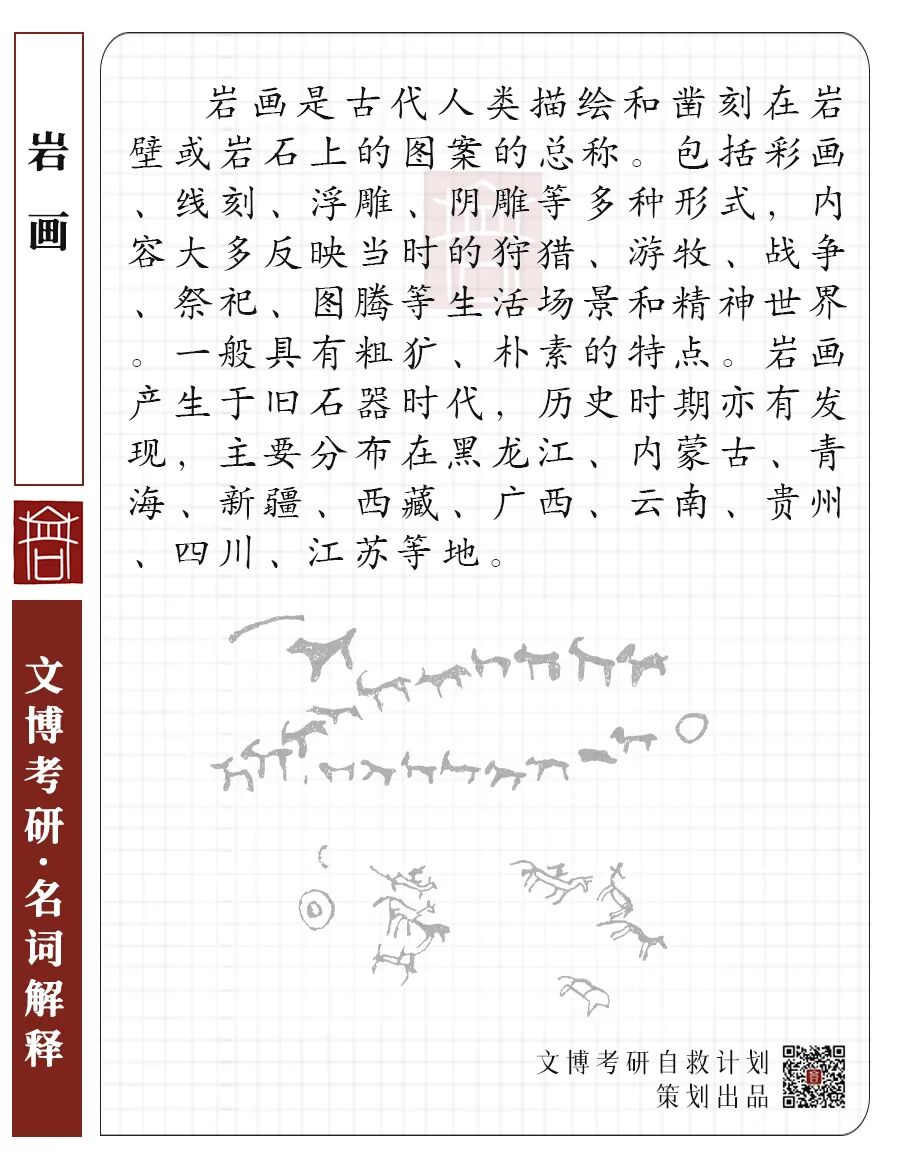 岩画
文博考研·名词解释
岩画是古代人类描绘和凿刻在岩
壁或岩石上的图案的总称。包括彩画
、线刻、浮雕、阴雕等多种形式，内
容大多反映当时的狩猎、游牧、战争
、祭祀、图腾等生活场景和精神世界
。一般具有粗犷、朴素的特点。岩画
产生于旧石器时代，历史时期亦有发
现，主要分布在黑龙江、内蒙古、青
海、新疆、西藏、广西、云南、贵州
、四川、江苏等地。
文博考研自救计划
策划出品